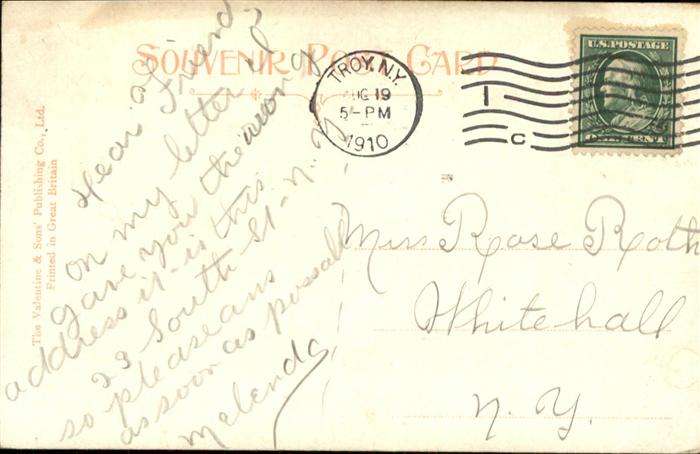 SOUVENIR POST CARD
The Valentine & Sons' Publishing Co., Ltd.
Printed in Great Britain
Dear Friend
on my letter I
gave you the wrong
address it is this
23 South St - N. Y
so please ans
as soon as possabl
Melenda
TROY, N.Y.
AUG 19
5 - PM
1910
1
C
U.S. POSTAGE
Miss Rose Roth
Whitehall
N. Y.